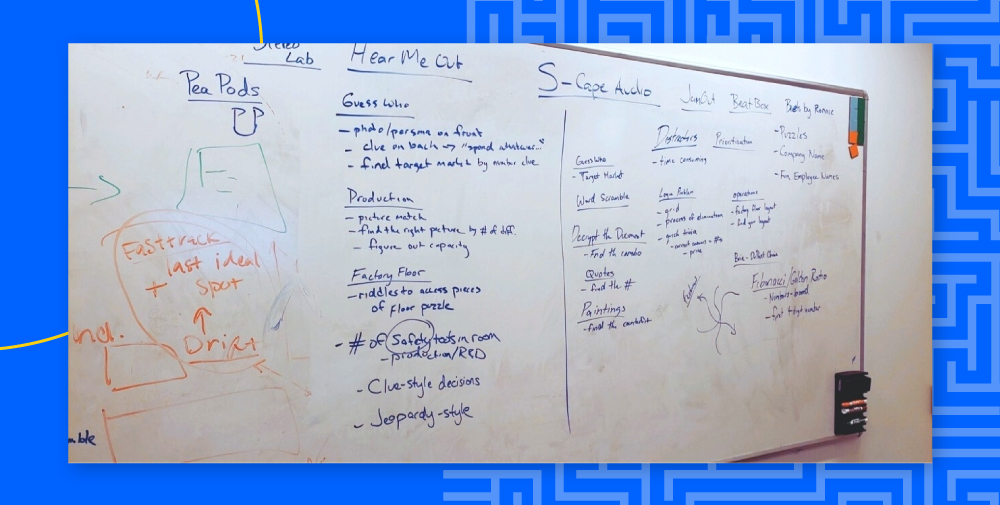 Stereo
Lab
Pea Pods
Fasttrack
last ideal
+ spot
Drift
Hear Me Out
Guess Who
- photo/persona on front
- clue on back → "spend whatever..."
- find target market by number clue
Production
- picture match
- find the right picture by # of diff.
- figure out capacity
Factory Floor
- riddles to access pieces
of floor puzzle
- # of Safety tools in room
- production/R&D
- Clue-style decisions
- Jeopardy-style
S-Cape Audio
JamOut
BeatBox
Beats by Ronnie
- Puzzles
- Company Name
- Fun Employee Names
Distractors
- time consuming
Prioritization
Guess Who
- Target Market
Word Scramble
Decrypt the Document
- Find the
Quotes
- find the #
Paintings
- find the
Logic Problem
- grid
- process of elimination
- quick trivia
- correct answers = #s
- prize
operations
- factory floor layout
- find your layout
Fibonacci/Golden Ratio
- Numbers-based
- find digit number